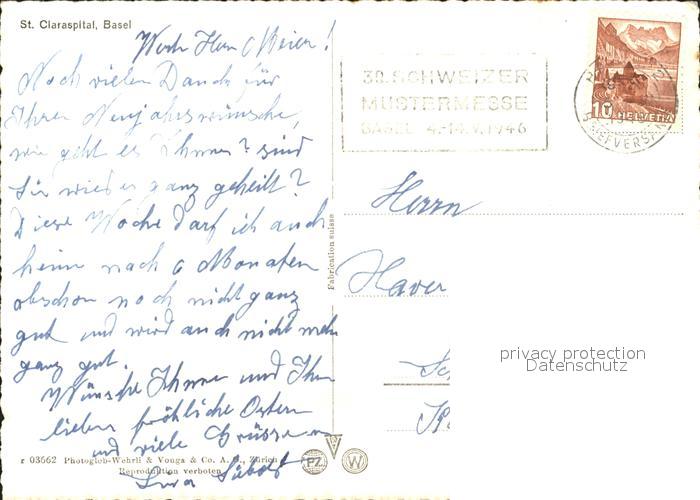 St. Claraspital, Basel
Werter Herr Meier!
Noch vielen Dank für
Ihre Neujahrswünsche,
wie geht es Ihnen? sind
Sie wieder ganz geheilt?
Diese Woche darf ich auch
heim nach 6 Monaten
obschon noch nicht ganz
gut und wird auch nicht mehr
ganz gut.
Wünsche Ihnen und Ihren
lieben fröhliche Ostern
und viele Grüsse
r 03562 Photogleb-Wehrli & Vouga & Co. A. G., Zürich
Reproduktion verboten
Fabrication suisse
30. SCHWEIZER
MUSTERMESSE
BASEL 4.-14.V.1946
BRIEFVERSAND
10 HELVETIA
Herrn
Xaver
PZ W
privacy protection
Datenschutz